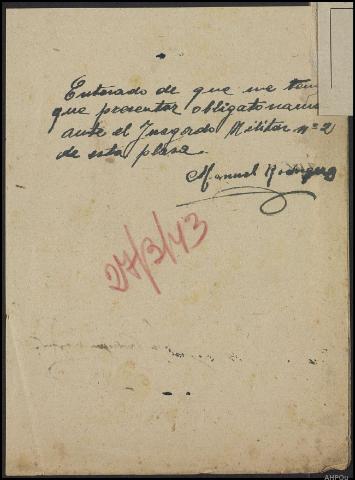 Enterado de que me ten
que presentar obligatoriam
ante el Juzgado Militar nº 2
de esta plaza.
Manuel Rodriguez
27/3/43
AHPOu